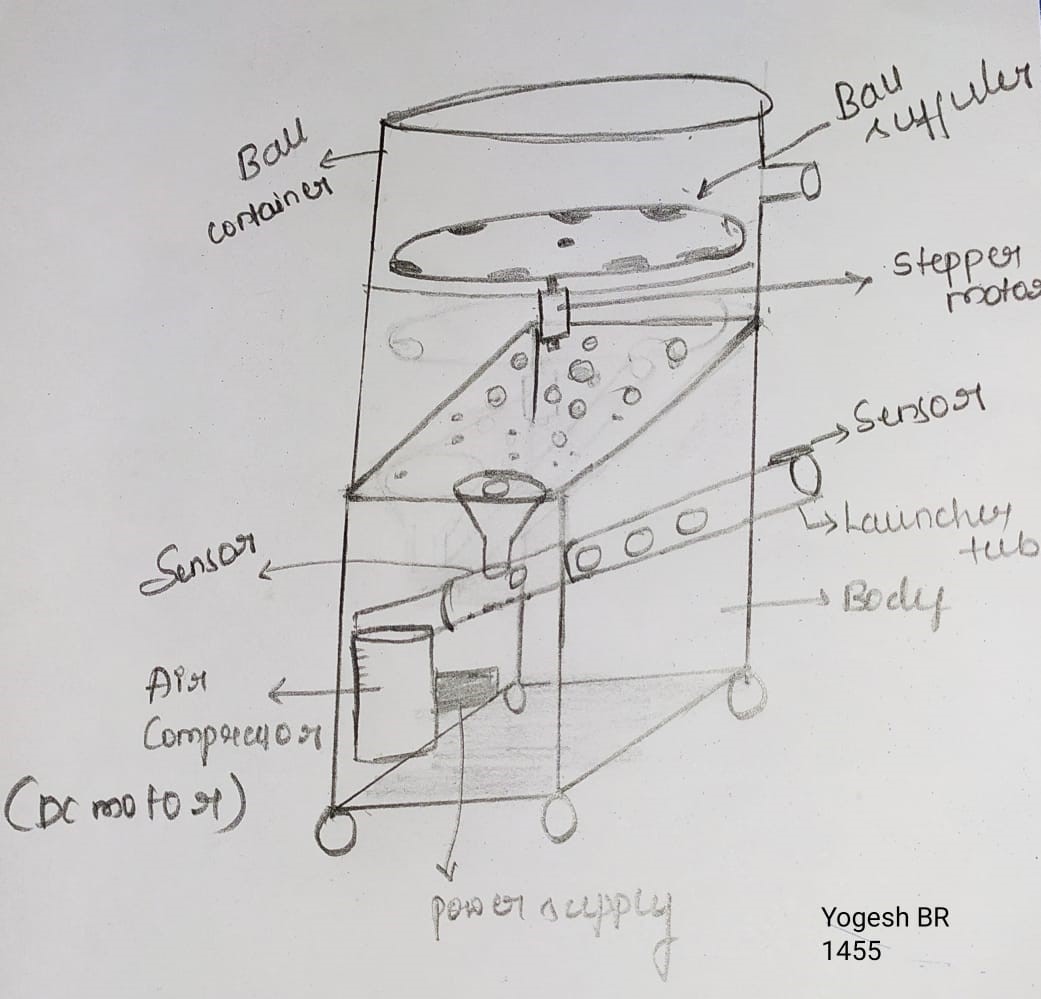 Ball
suffuler
Ball
container
stepper
motor
Sensor
Launcher
tub
Sensor
Body
Air
Compressor
(DC motor)
power supply
Yogesh BR
1455